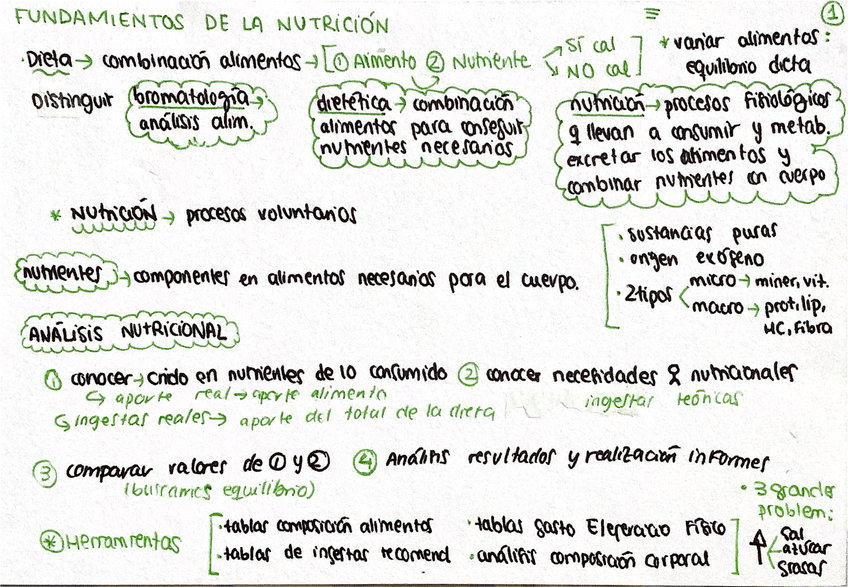 FUNDAMENTOS DE LA NUTRICIÓN
①
· Dieta → combinación alimentos → [① Alimento ② Nutriente
SÍ cal
NO cal ]
* variar alimentos:
equilibrio dieta
Distinguir
bromatología →
análisis alim.
dietética → combinación
alimentos para conseguir
nutrientes necesarios
nutrición → procesos fisiológicos
q llevan a consumir y metab.
excretar los alimentos y
combinar nutrientes en cuerpo
* NUTRICIÓN → procesos voluntarios
nutrientes → componentes en alimentos necesarios para el cuerpo.
· sustancias puras
· origen exógeno
· 2 tipos
micro → miner, vit.
macro → prot, lip,
HC, Fibra
ANÁLISIS NUTRICIONAL
① conocer → cnido en nutrientes de lo consumido ② conocer necesidades nutricionales
↳ aporte real → aporte alimento
ingestas teóricas
↳ ingestas reales → aporte del total de la dieta
③ comparar valores de ① y ② ④ Análisis resultados y realización informes
(buscamos equilibrio)
· 3 grandes
problem:
↑ sal
azúcar
grasas
* Herramientas
· tablas composición alimentos
· tablas de ingestas recomend
· tablas gasto Ejercicio Físico
· análisis composición corporal